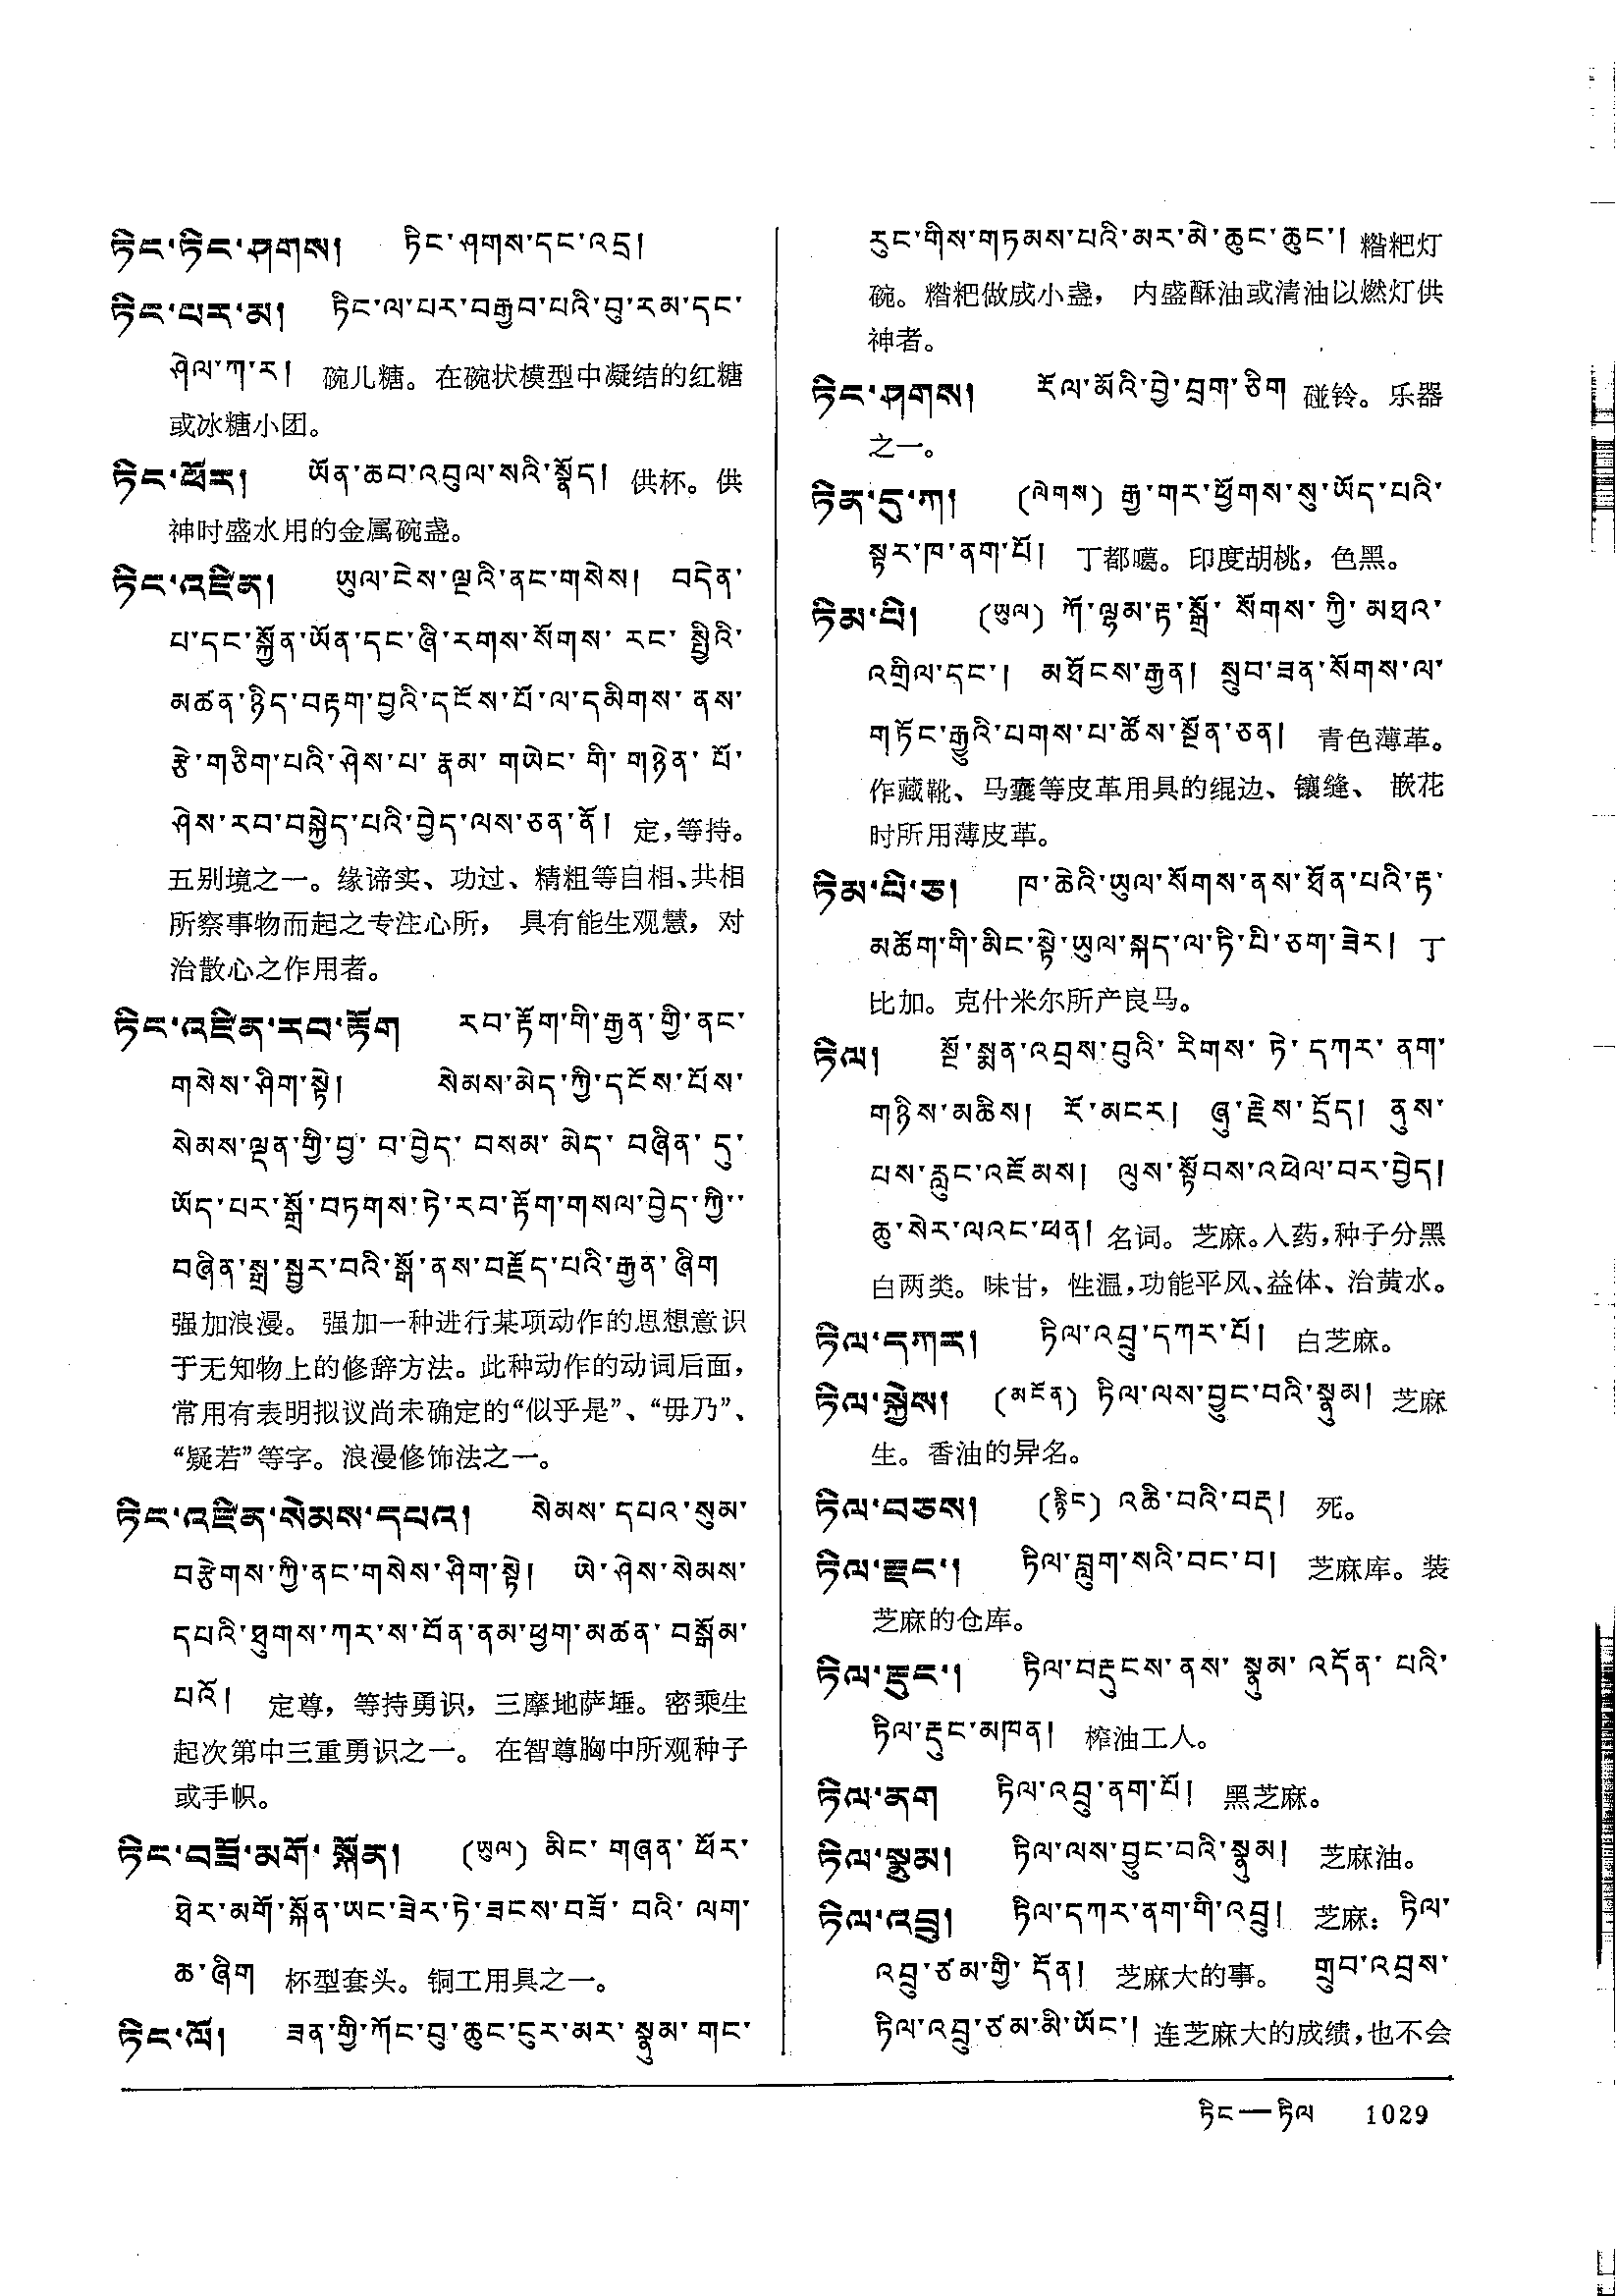 ཏིང་ཏིང་ཤགས། ཏིང་ཤགས་དང་འདྲ།
ཏིང་པར་མ། ཏིང་ལ་པར་བརྒྱབ་པའི་བུ་རམ་དང་
ཤེལ་ཀ་ར། 碗儿糖。在碗状模型中凝结的红糖
或冰糖小团。
ཏིང་ཕོར། ཡོན་ཆབ་འབུལ་སའི་སྣོད། 供杯。供
神时盛水用的金属碗盏。
ཏིང་འཛིན། ཡུལ་ངེས་ལྔའི་ནང་གསེས། བདེན་
པ་དང་སྐྱོན་ཡོན་དང་ཞི་རགས་སོགས་ རང་ སྤྱིའི་
མཚན་ཉིད་བརྟག་བྱའི་དངོས་པོ་ལ་དམིགས་ ནས་
རྩེ་གཅིག་པའི་ཤེས་པ་ རྣམ་ གཡེང་ གི་ གཉེན་ པོ་
ཤེས་རབ་བསྐྱེད་པའི་བྱེད་ལས་ཅན་ནོ། 定,等持。
五别境之一。缘谛实、功过、精粗等自相、共相
所察事物而起之专注心所， 具有能生观慧，对
治散心之作用者。
ཏིང་འཛིན་རབ་རྟོག རབ་རྟོག་གི་རྒྱན་གྱི་ནང་
གསེས་ཤིག་སྟེ། སེམས་མེད་ཀྱི་དངོས་པོས་
སེམས་ལྡན་གྱི་བྱ་ བ་བྱེད་ བསམ་ མེད་ བཞིན་ དུ་
ཡོད་པར་སྒྲོ་བཏགས་ཏེ་རབ་རྟོག་གསལ་བྱེད་ཀྱི་་
བཞིན་སྒྲ་སྦྱར་བའི་སྒོ་ནས་བརྗོད་པའི་རྒྱན་ཞིག
强加浪漫。 强加一种进行某项动作的思想意识
于无知物上的修辞方法。此种动作的动词后面，
常用有表明拟议尚未确定的“似乎是”、“毋乃”、
“疑若”等字。浪漫修饰法之一。
ཏིང་འཛིན་སེམས་དཔའ། སེམས་ དཔའ་སུམ་
བརྩེགས་ཀྱི་ནང་གསེས་ཤིག་སྟེ། ཡེ་ཤེས་སེམས་
དཔའི་ཐུགས་ཀར་ས་བོན་ནམ་ཕྱག་མཚན་ བསྒོམ་
པའོ། 定尊，等持勇识，三摩地萨埵。密乘生
起次第中三重勇识之一。 在智尊胸中所观种子
或手帜。
ཏིང་བཟོ་མགོ་ སྐོན། (ཡུལ) མིང་ གཞན་ ཕོར་
ཐེར་མགོ་སྐོན་ཡང་ཟེར་ཏེ་ཟངས་བཟོ་ བའི་ ལག་
ཆ་ཞིག 杯型套头。铜工用具之一。
ཏིང་ལོ། ཟན་གྱི་ཀོང་བུ་ཆུང་ངུར་མར་ སྣུམ་ གང་
རུང་གིས་གཏམས་པའི་མར་མེ་ཆུང་ཆུང་། 糌粑灯
碗。糌粑做成小盏， 内盛酥油或清油以燃灯供
神者。
ཏིང་ཤགས། རོལ་མོའི་བྱེ་བྲག་ཅིག 碰铃。乐器
之一。
ཏིན་དུ་ཀ། (ལེགས) རྒྱ་གར་ཕྱོགས་སུ་ཡོད་པའི་
སྟར་ཁ་ནག་པོ། 丁都噶。印度胡桃，色黑。
ཏིམ་པི། (ཡུལ) ཀོ་ལྷམ་རྟ་སྒྲོ་ སོགས་ ཀྱི་ མཐའ་
འགྲིལ་དང་། མཐོངས་རྒྱན། སྲུབ་ཟན་སོགས་ལ་
གཏོང་རྒྱུའི་པགས་པ་ཚོས་སྔོན་ཅན། 青色薄革。
作藏靴、马囊等皮革用具的绲边、镶缝、 嵌花
时所用薄皮革。
ཏིམ་པི་ཅ། ཁ་ཆེའི་ཡུལ་སོགས་ནས་ཐོན་པའི་རྟ་
མཆོག་གི་མིང་སྟེ་ཡུལ་སྐད་ལ་ཏི་པི་ཅག་ཟེར། 丁
比加。克什米尔所产良马。
ཏིལ། སྔོ་སྨན་འབྲས་བུའི་ རིགས་ ཏེ་ དཀར་ ནག་
གཉིས་མཆིས། རོ་མངར། ཞུ་རྗེས་དྲོད། ནུས་
པས་རླུང་འཇོམས། ལུས་སྟོབས་འཕེལ་བར་བྱེད།
ཆུ་སེར་ལའང་ཕན། 名词。芝麻。入药,种子分黑
白两类。味甘，性温,功能平风、益体、治黄水。
ཏིལ་དཀར། ཏིལ་འབྲུ་དཀར་པོ། 白芝麻。
ཏིལ་སྐྱེས། (མངོན) ཏིལ་ལས་བྱུང་བའི་སྣུམ། 芝麻
生。香油的异名。
ཏིལ་བཅས། (རྙིང) འཆི་བའི་བརྡ། 死。
ཏིལ་རྫང་། ཏིལ་བླུག་སའི་བང་བ། 芝麻库。装
芝麻的仓库。
ཏིལ་རྡུང་། ཏིལ་བརྡུངས་ནས་ སྣུམ་ འདོན་ པའི་
ཏིལ་རྡུང་མཁན། 榨油工人。
ཏིལ་ནག ཏིལ་འབྲུ་ནག་པོ། 黑芝麻。
ཏིལ་སྣུམ། ཏིལ་ལས་བྱུང་བའི་སྣུམ། 芝麻油。
ཏིལ་འབྲུ། ཏིལ་དཀར་ནག་གི་འབྲུ། 芝麻：ཏིལ་
འབྲུ་ཙམ་གྱི་ དོན། 芝麻大的事。 གྲུབ་འབྲས་
ཏིལ་འབྲུ་ཙམ་མི་ཡོང་། 连芝麻大的成绩,也不会
ཏིང—ཏིལ 1029